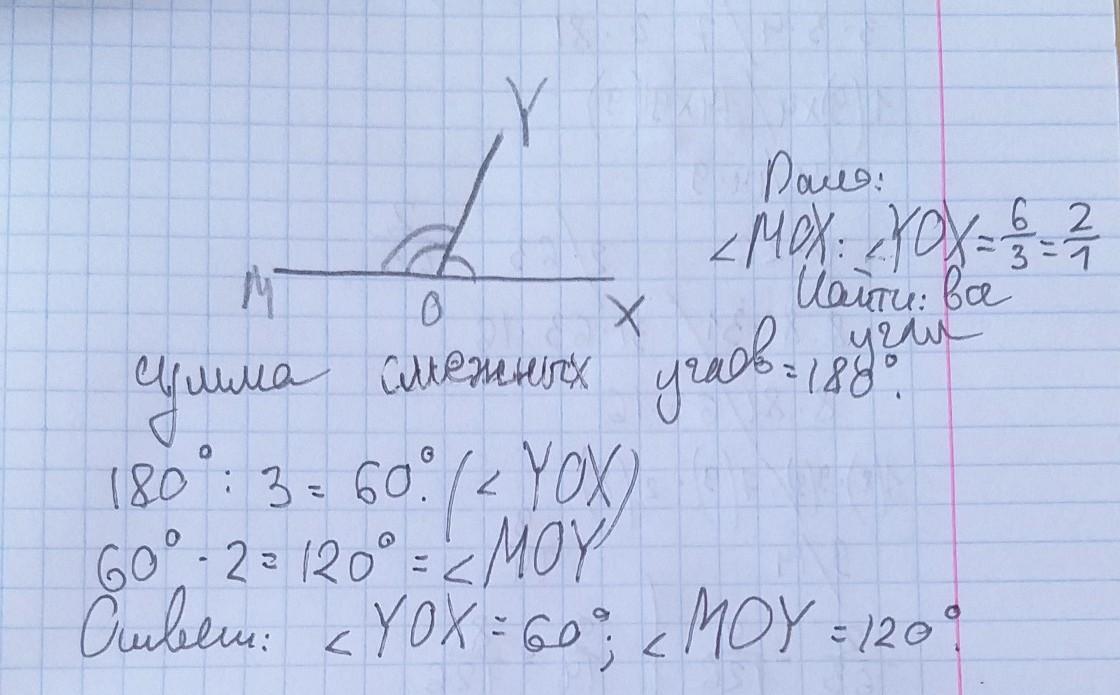 Y
M
O
X
Дано:
∠MOX : ∠YOX = 6/3 = 2/1
Найти: все
углы
сумма смежных углов = 180°.
180° : 3 = 60°. (∠YOX)
60° · 2 = 120° = ∠MOY
Ответ: ∠YOX = 60°; ∠MOY = 120°.